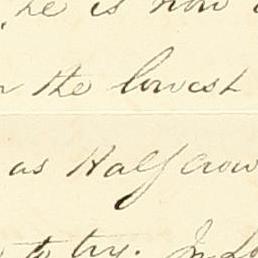 he is now
the lowest
as Half crow
to try. In